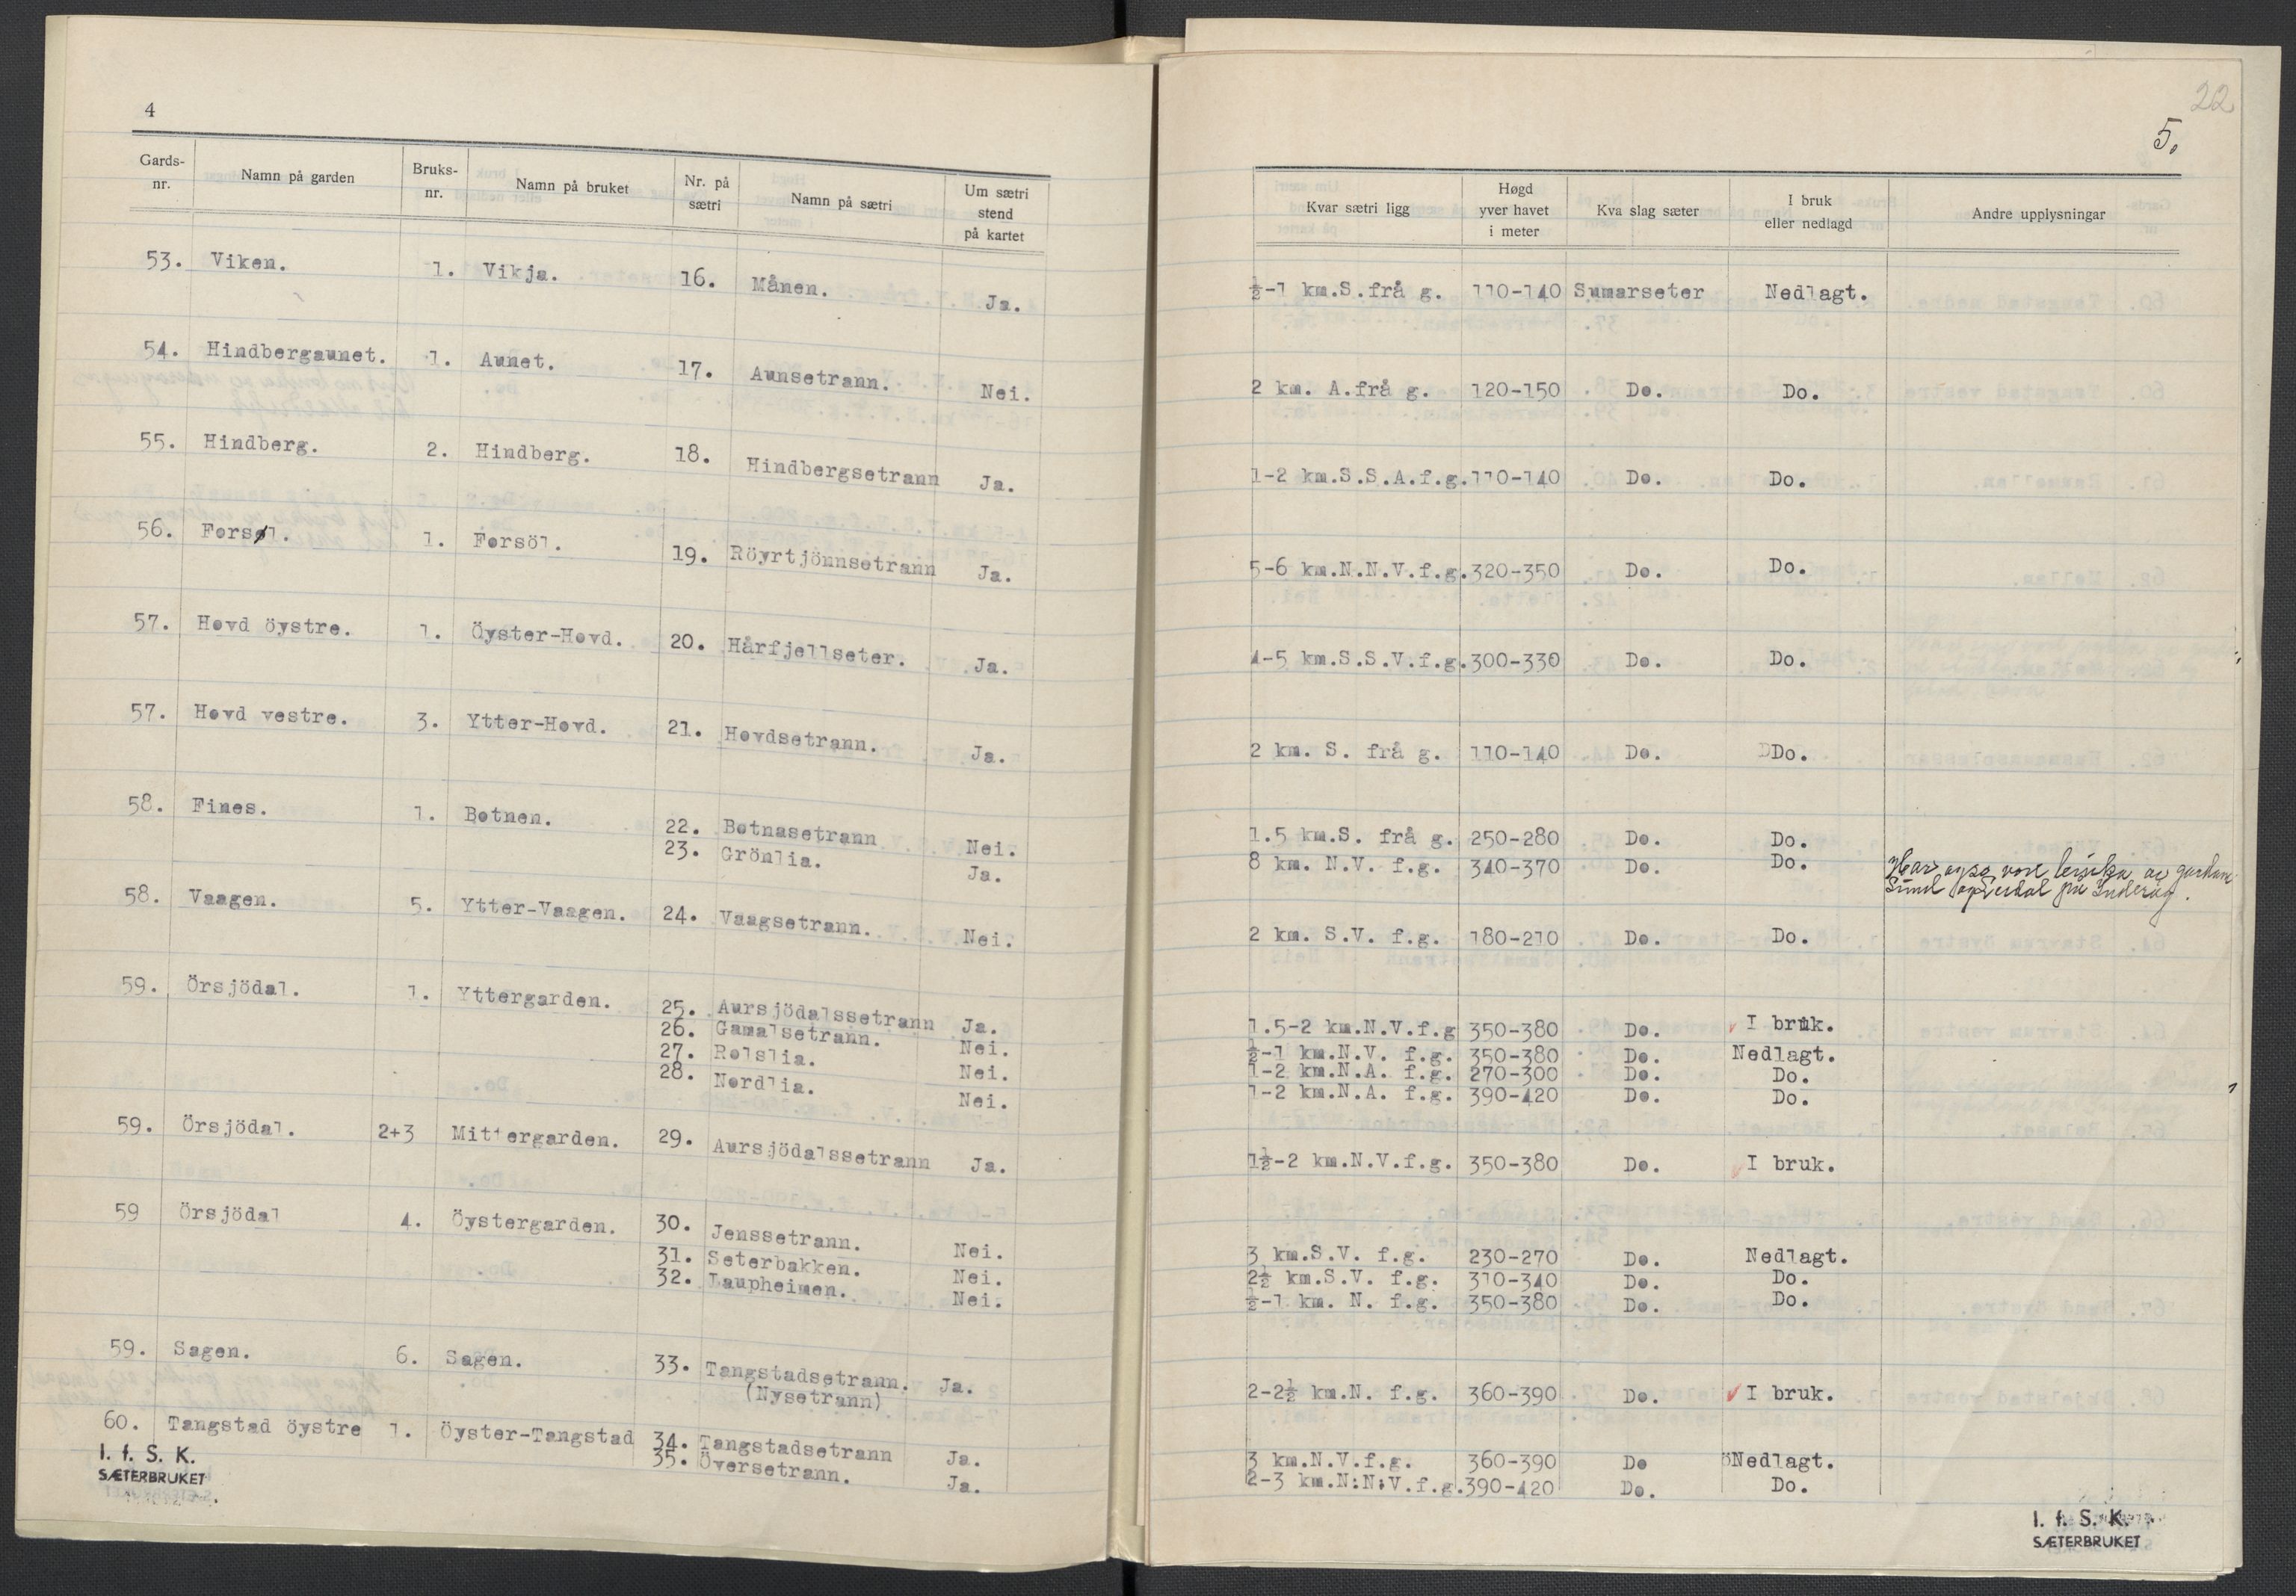 4
Gards-nr. Namn på garden Bruks-nr. Namn på bruket Nr. på sætri Namn på sætri Um sætri stend på kartet
53. Viken. 1. Vikja. 16. Månen. Ja.
54. Hindbergaunet. 1. Aunet. 17. Aunsetrann. Nei.
55. Hindberg. 2. Hindberg. 18. Hindbergsetrann Ja.
56. Forsøl. 1. Forsöl. 19. Röyrtjönnsetrann Ja.
57. Hovd öystre. 1. Öyster-Hovd. 20. Hårfjellseter. Ja.
57. Hovd vestre. 3. Ytter-Hovd. 21. Hovdsetrann. Ja.
58. Fines. 1. Botnen. 22. Botnasetrann Nei.
23. Grönlia. Ja.
58. Vaagen. 5. Ytter-Vaagen. 24. Vaagsetrann. Nei.
59. Örsjödal. 1. Yttergarden. 25. Aursjödalssetrann Ja.
26. Gamalsetrann. Nei.
27. Rolslia. Nei.
28. Nordlia. Nei.
59. Örsjödal. 2+3 Mittergarden. 29. Aursjödalssetrann Ja.
59 Örsjödal 4. Öystergarden. 30. Jenssetrann. Nei.
31. Seterbakken. Nei.
32. Laupheimen. Nei.
59. Sagen. 6. Sagen. 33. Tangstadsetrann. Ja.
(Nysetrann)
60. Tangstad öystre 1. Öyster-Tangstad 34. Tangstadsetrann Ja.
35. Översetrann. Ja.
I. f. S. K.
SÆTERBRUKET
22
5.
Kvar sætri ligg Høgd yver havet i meter Kva slag sæter I bruk eller nedlagd Andre upplysningar
½-1 km.S.frå g. 110-140 Sumarseter Nedlagt.
2 km. A.frå g. 120-150 Do. Do.
1-2 km.S.S.A.f.g. 110-140 Do. Do.
5-6 km.N.N.V.f.g. 320-350 Do. Do.
4-5 km.S.S.V.f.g. 300-330 Do. Do.
2 km. S. frå g. 110-140 Do. DDo.
1.5 km.S. frå g. 250-280 Do. Do.
8 km. N.V. f.g. 340-370 Do. Do. Har av
på Inderøy.
2 km. S.V. f.g. 180-210 Do. Do.
1.5-2 km.N.V.f.g 350-380 Do. I bruk.
½-1 km.N.V. f.g. 350-380 Do. Nedlagt.
1-2 km.N.A. f.g. 270-300 Do. Do.
1-2 km.N.A. f.g. 390-420 Do. Do.
1½-2 km.N.V.f.g. 350-380 Do. I bruk.
3 km.S.V. f.g. 230-270 Do. Nedlagt.
2½ km.S.V. f.g. 310-340 Do. Do.
½-1 km. N. f.g. 350-380 Do. Do.
2-2½ km.N. f.g. 360-390 Do. I bruk.
3 km.N.V.f.g. 360-390 Do öNedlagt.
2-3 km.N:N:V.f.g. 390-420 Do. Do.
I. f. S. K.
SÆTERBRUKET